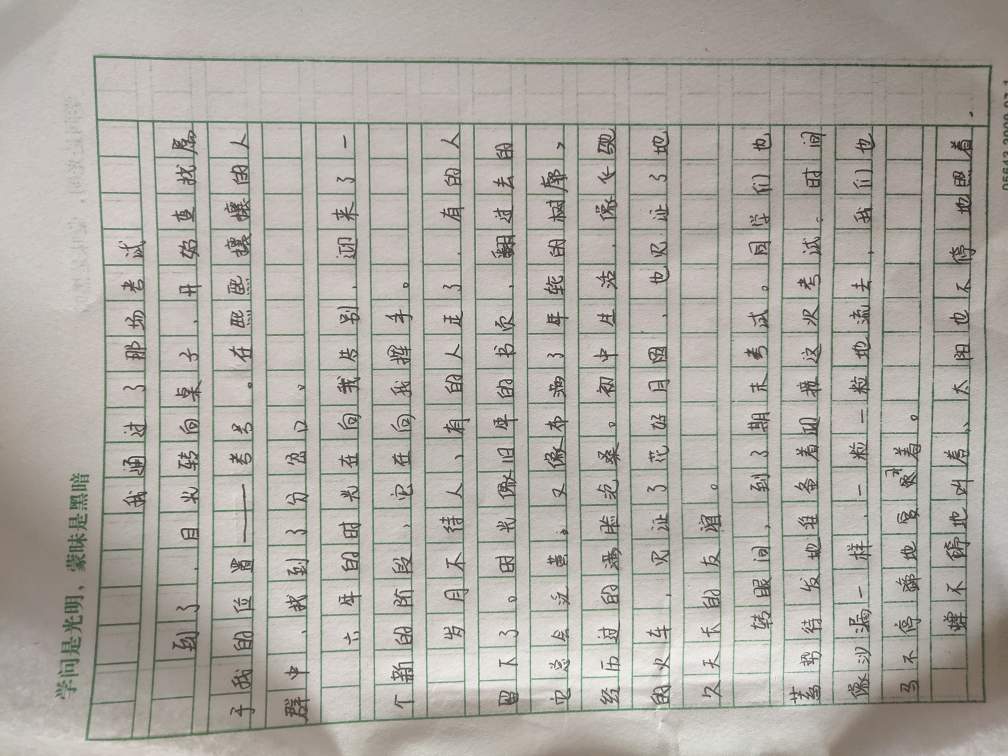 学问是光明，蒙昧是黑暗
我通过了那场考试
到了，目光转向桌子，开始查找属
于我的位置——考号。在熙熙攘攘的人
群中，我找到了分岔口。
六年的时光在向我告别，迎来了一
个新的阶段，它在向我挥手。
岁月不待人、有的人走了，有的人
留下了。时光像旧年的书页，翻过去的
它总会泛黄；又像布满了年轮的树廓，
经历过的满脸沧桑。初中生活，像
火车，见证了花好月圆，也见证了地
久天长的友谊。
转眼间，到了期末考试。同学们也
蓄势待发地准备着迎接这次考试。时间
像沙漏一样，一粒一粒地流去，我们也
马不停蹄地着。
蝉不停地叫着，太阳也不停地照着，